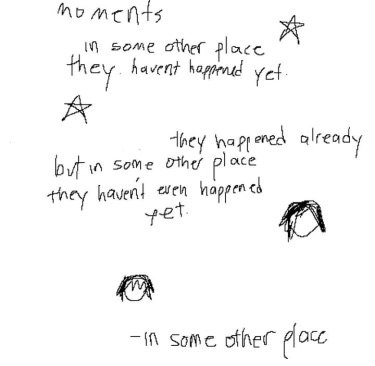 moments
in some other place
they. havent happened yet.
they happened already
but in some other place
they haven't even happened
yet.
-in some other place